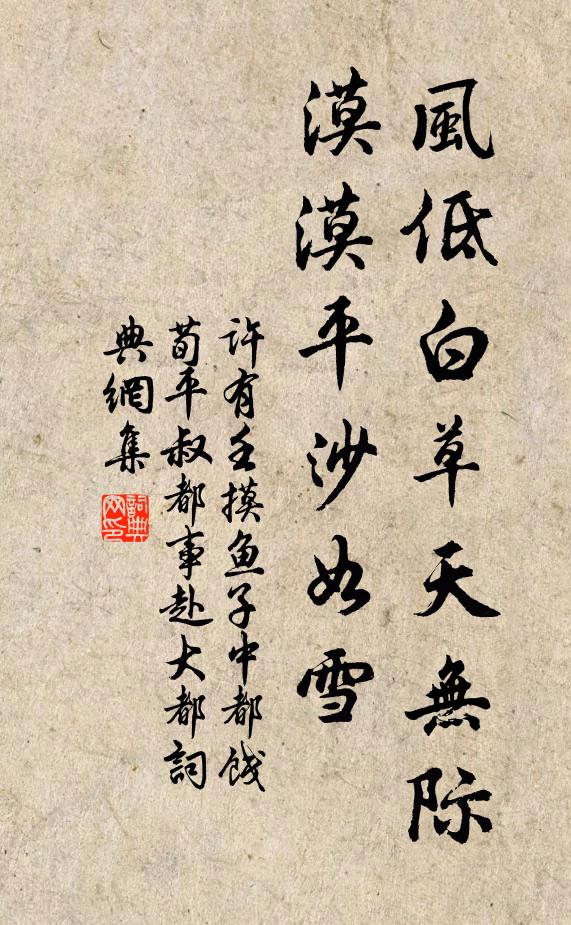 風低白草天無际
漠漠平沙如雪
许有壬摸鱼子中都饯
荀平叔都事赴大都詞
典網集
詞典网印